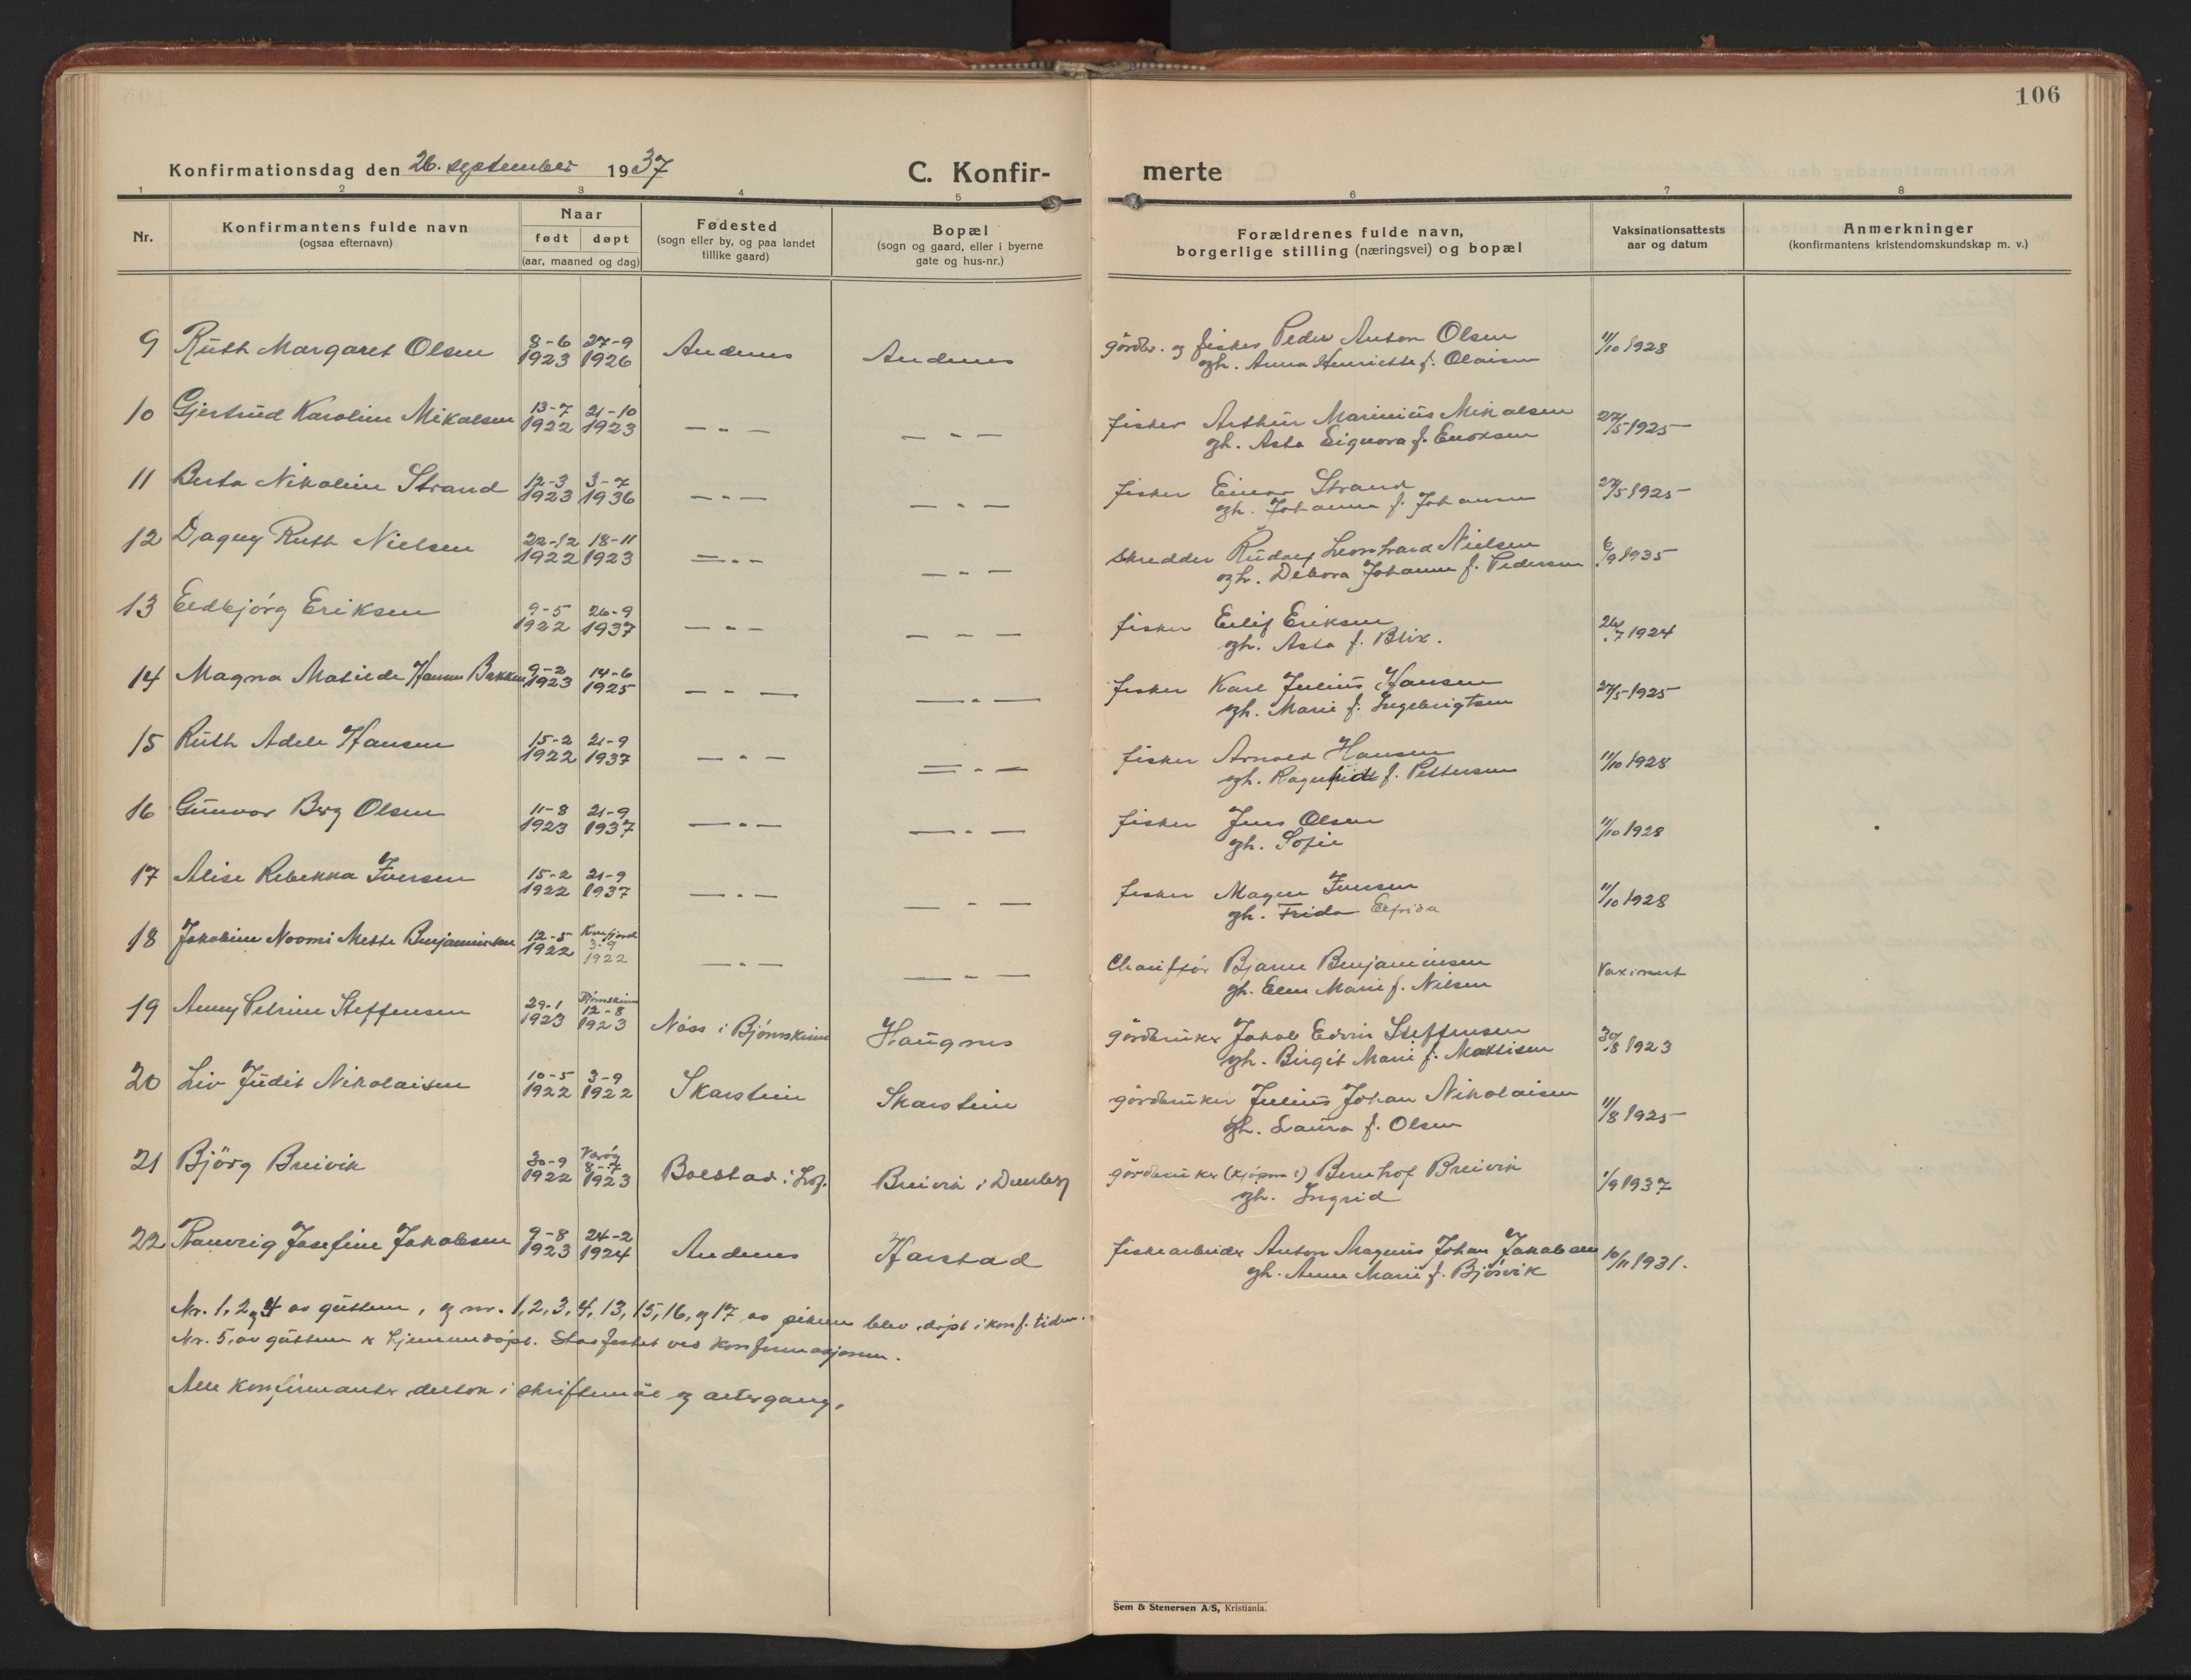 106
Konfirmationsdag den 26. september 1937
C. Konfir-
merte
1 2 3 4 5 6 7 8
Nr.
Konfirmantens fulde navn
(ogsaa efternavn)
Naar
født døpt
(aar, maaned og dag)
Fødested
(sogn eller by, og paa landet
tillike gaard)
Bopæl
(sogn og gaard, eller i byerne
gate og hus-nr.)
Forældrenes fulde navn,
borgerlige stilling (næringsvei) og bopæl
Vaksinationsattests
aar og datum
Anmerkninger
(konfirmantens kristendomskundskap m. v.)
9 Ruth Margaret Olsen 8-6 1923 27-9 1926 Andenes Andenes gårdbr. og fisker Peder Anton Olsen 11/10 1928
og h. Anna Henriette f. Olaisen
10 Gjertrud Karoline Mikalsen 13-7 1922 21-10 1923 — „ — — „ — fisker Arthur Marinius Mikalsen 27/5 1925
og h. Asta Signora f. Enoksen
11 Berta Nikoline Strand 12-3 1923 3-7 1936 — „ — — „ — fisker Einar Strand 27/5 1925
og h. Johanna f. Johansen
12 Dagny Ruth Nielsen 22-12 1922 18-11 1923 — „ — — „ — skredder Rudolf Leonhard Nielsen 6/9 1935
og h. Debora Johanne f. Pedersen
13 Eldbjørg Eriksen 9-5 1922 26-9 1937 — „ — — „ — fisker Eilif Eriksen 26/7 1924
og h. Asta f. Blix.
14 Magna Matilde Hansen Bakken 9-2 1923 14-6 1925 — „ — — „ — fisker Karl Julius Hansen 27/5 1925
og h. Marie f. Ingebrigtsen
15 Ruth Adele Hansen 15-2 1922 21-9 1937 — „ — — „ — fisker Arnold Hansen 11/10 1928
og h. Ragnhild f. Pettersen
16 Gunvor Berg Olsen 11-8 1923 21-9 1937 — „ — — „ — fisker Jens Olsen 11/10 1928
og h. Sofie
17 Alise Rebekka Iversen 15-2 1922 21-9 1937 — „ — — „ — fisker Magne Iversen 11/10 1928
og h. Frida Elfrida
18 Jakobine Noomi Mette Benjaminsen 12-5 1922 3-9 1922 — „ — — „ — Chauffør Bjarne Benjaminsen
og h. Elen Marie f. Nilsen
19 Anny Petrine Steffensen 29-1 1923 Bjørnskinn 12-8 1923 Nøss i Bjørnskinn Haugnes gårdbruker Jakob Edvin Steffensen 30/8 1923
og h. Birgit Marie f. Mattisen
20 Liv Judit Nikolaisen 10-5 1922 3-9 1922 Skarstein Skarstein gårdbruker Julius Johan Nikolaisen 11/8 1925
og h. Laura f. Olsen
21 Bjørg Breivik 30-9 1922 Værøy 8-7 1923 Bolstad i Lof. Breivik i Dverberg gårdbruker Bernhof Breivik 1/9 1937
og h. Ingrid
22 Ranveig Josefine Jakobsen 9-8 1923 24-2 1924 Andenes Harstad fiskearbeider Anton Magnus Johan Jakobsen 10/11 1931.
og h. Anne Marie f. Bjørvik
Nr. 1, 2 og 4 av guttene, og nr. 1, 2, 3, 4, 13, 15, 16, og 17 av pikene blev døpt i konf. tiden.
Nr. 5, av guttene er hjemmedøpt. Stadfestet ved konfirmasjonen.
Alle konfirmanter deltok i skriftemål og altergang.
Sem & Stenersen A/S, Kristiania.